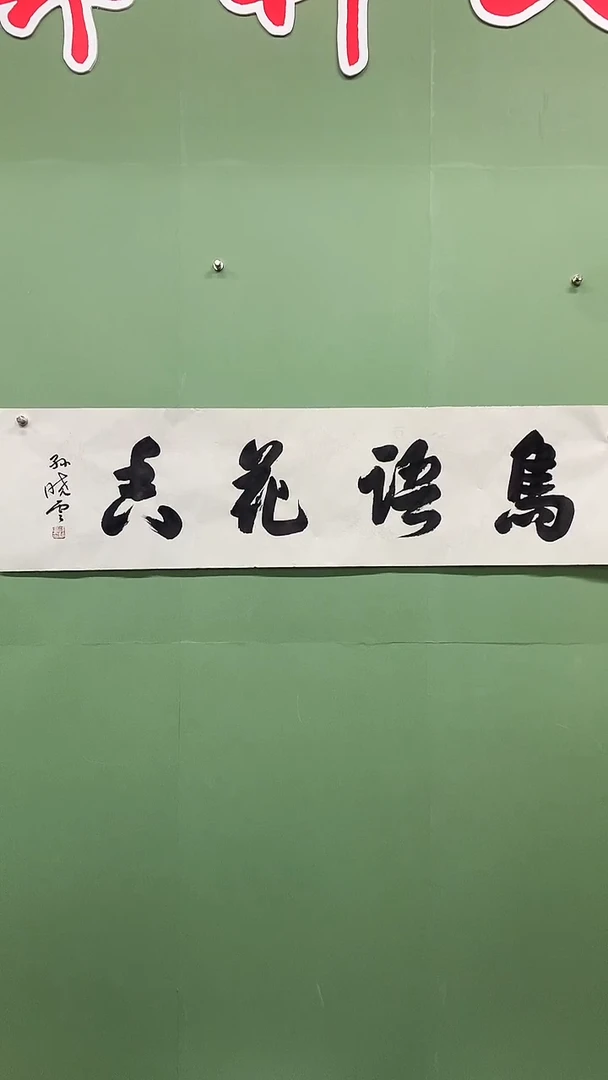 鳥語花香
孙晓云